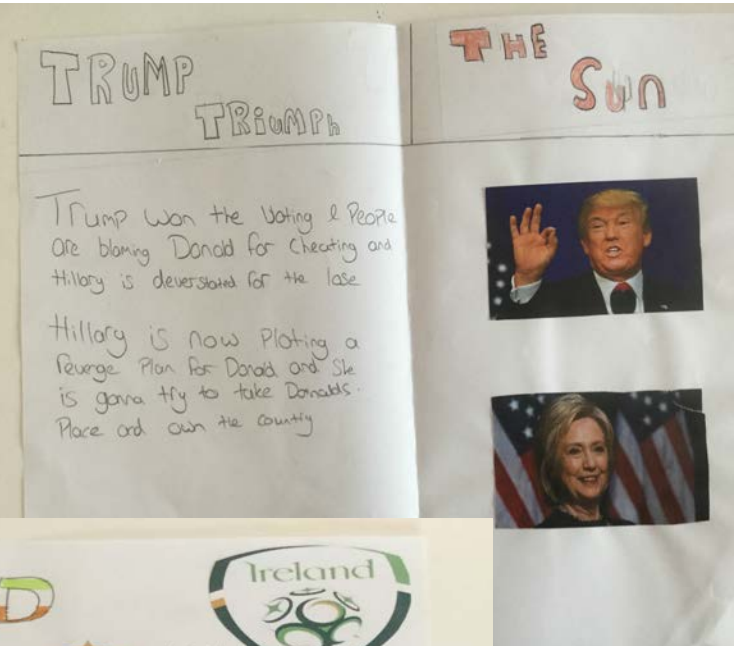 TRUMP
TRiUMPh
THE
SUN
Trump won the Voting & People
are blaming Donald for Cheating and
Hillary is deverstated for the lose
Hillary is now Ploting a
revenge Plan for Donald and She
is gonna try to take Donalds.
Place and own the country
Ireland
D